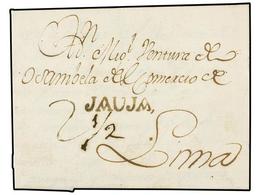 A D.n Mig.l Ventura de
Osambela del Comercio de
JAUJA,
1/2
Lima